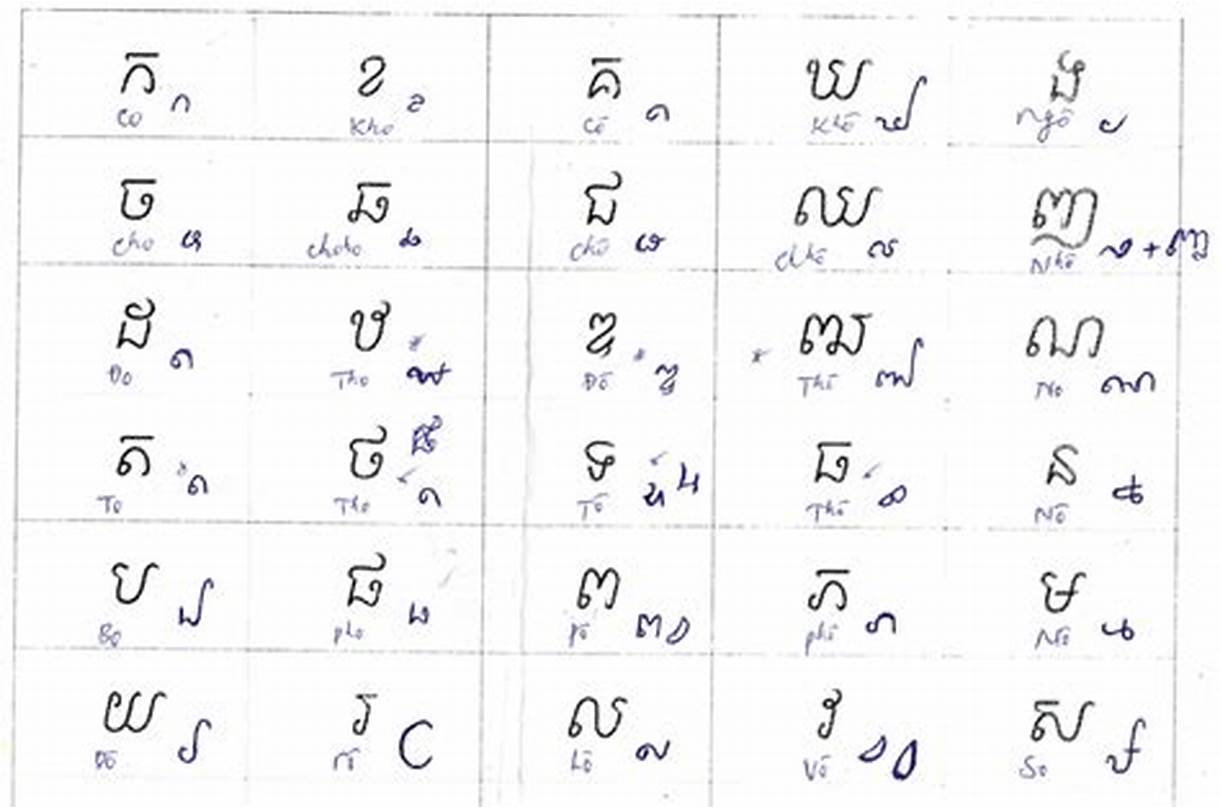 ក ខ គ ឃ ង
Co ្ក Kho ្ខ Cô ្គ Khô ្ឃ Ngô ្ង
ច ឆ ជ ឈ ញ
cho ្ច choho ្ឆ chô ្ជ chhô ្ឈ Nhô ្ញ
ដ ឋ ឌ ឍ ណ
Đo ្ដ Tho * ្ឋ Đô * ្ឌ * Thô ្ឍ No ្ណ
ត ថ ទ ធ ន
To * ្ត Tho ្ថ Tô ្ទ Thô ្ធ Nô ្ន
ប ផ ព ភ ម
Bo ្ប pho ្ផ Pô ្ព phô ្ភ Mô ្ម
យ រ ល វ ស
Dô ្យ rô ្រ Lô ្ល Vô ្វ So ្ស